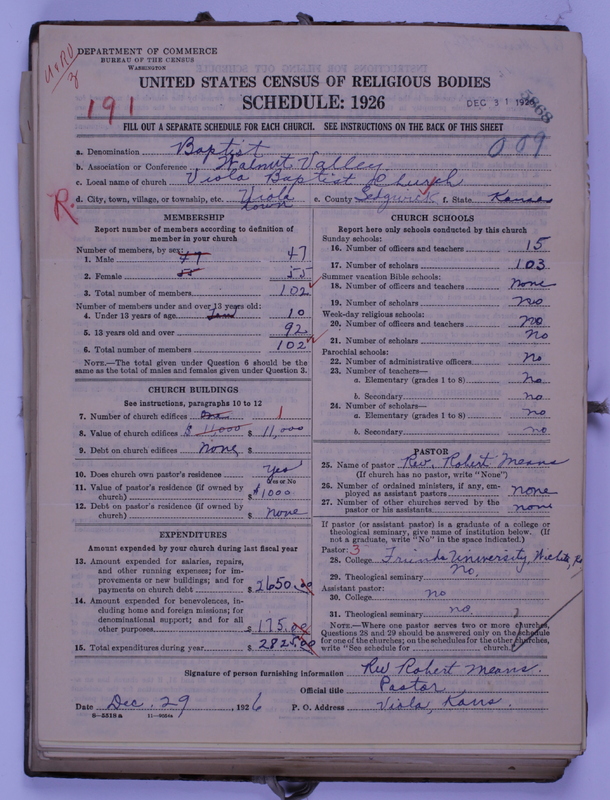 DEPARTMENT OF COMMERCE
BUREAU OF THE CENSUS
WASHINGTON
UNITED STATES CENSUS OF RELIGIOUS BODIES
SCHEDULE: 1926
DEC 31 1926
191
FILL OUT A SEPARATE SCHEDULE FOR EACH CHURCH. SEE INSTRUCTIONS ON THE BACK OF THIS SHEET
009
a. Denomination Baptist
b. Association or Conference Walnut Valley
c. Local name of church Viola Baptist Church
d. City, town, village, or township, etc. Viola town e. County Sedgwick f. State Kansas
R.
MEMBERSHIP
Report number of members according to definition of
member in your church
Number of members, by sex:
1. Male 47 47
2. Female 55 55
3. Total number of members 102
Number of members under and over 13 years old:
4. Under 13 years of age 10
5. 13 years old and over 92
6. Total number of members 102
NOTE.—The total given under Question 6 should be the
same as the total of males and females given under Question 3.
CHURCH BUILDINGS
See instructions, paragraphs 10 to 12
7. Number of church edifices One 1
8. Value of church edifices $ 11,000 $ 11,000
9. Debt on church edifices None $
10. Does church own pastor's residence yes
(Yes or No)
11. Value of pastor's residence (if owned by
church) $ $1000
12. Debt on pastor's residence (if owned by
church) $ none
EXPENDITURES
Amount expended by your church during last fiscal year
13. Amount expended for salaries, repairs,
and other running expenses; for im-
provements or new buildings; and for
payments on church debt $ 2650.00
14. Amount expended for benevolences, in-
cluding home and foreign missions; for
denominational support; and for all
other purposes $ 175.00
15. Total expenditures during year $ 2825.00
CHURCH SCHOOLS
Report here only schools conducted by this church
Sunday schools:
16. Number of officers and teachers 15
17. Number of scholars 103
Summer vacation Bible schools:
18. Number of officers and teachers none
19. Number of scholars no
Week-day religious schools:
20. Number of officers and teachers no
21. Number of scholars no
Parochial schools:
22. Number of administrative officers no
23. Number of teachers—
a. Elementary (grades 1 to 8) no
b. Secondary no
24. Number of scholars—
a. Elementary (grades 1 to 8) no
b. Secondary no
PASTOR
25. Name of pastor Rev. Robert Means
(If church has no pastor, write "None")
26. Number of ordained ministers, if any, em-
ployed as assistant pastors none
27. Number of other churches served by the
pastor or his assistants none
If pastor (or assistant pastor) is a graduate of a college or
theological seminary, give name of institution below. (If
not a graduate, write "No" in the space indicated.)
Pastor: 3
28. College Friends University, Wichita, Ks
29. Theological seminary No.
Assistant pastor:
30. College no
31. Theological seminary no.
NOTE.—Where one pastor serves two or more churches,
Questions 28 and 29 should be answered only on the schedule
for one of the churches; on the schedules for the other churches,
write "See schedule for church."
Signature of person furnishing information Rev Robert Means.
Official title Pastor
Date Dec. 29, 1926 P. O. Address Viola, Kans.
8—5518a 11—9054a